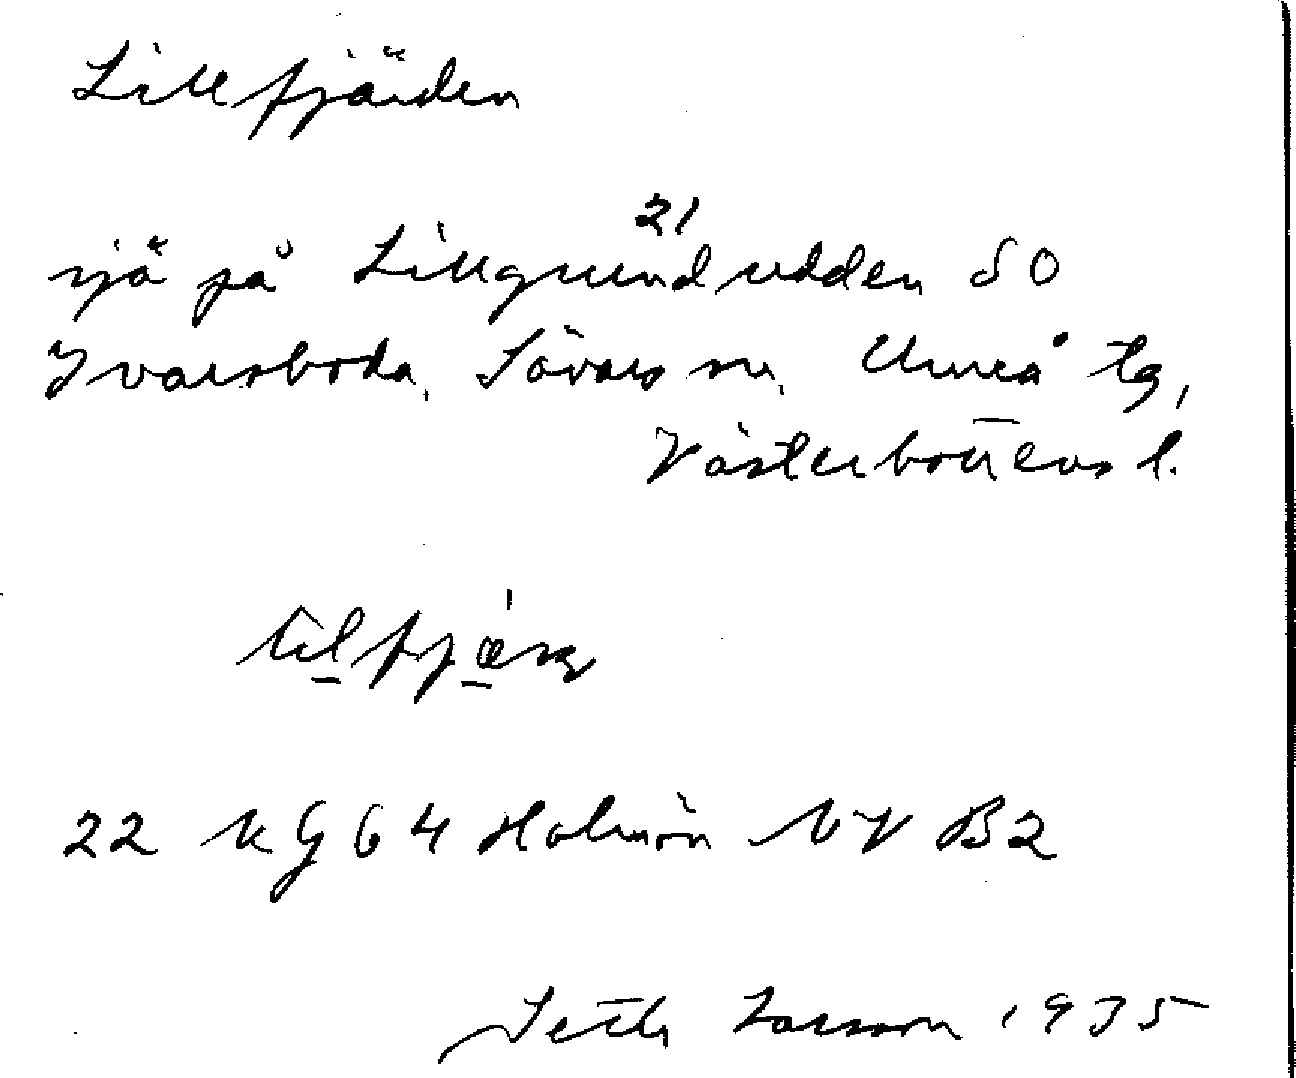 Lillfjärden
21
sjö på Lillgrundudden SO
Ivarsboda, Sävars sn, Umeå tg,
Västerbottens l.
22 k G 64 Holmön NV B2
Seth Larsson 1935